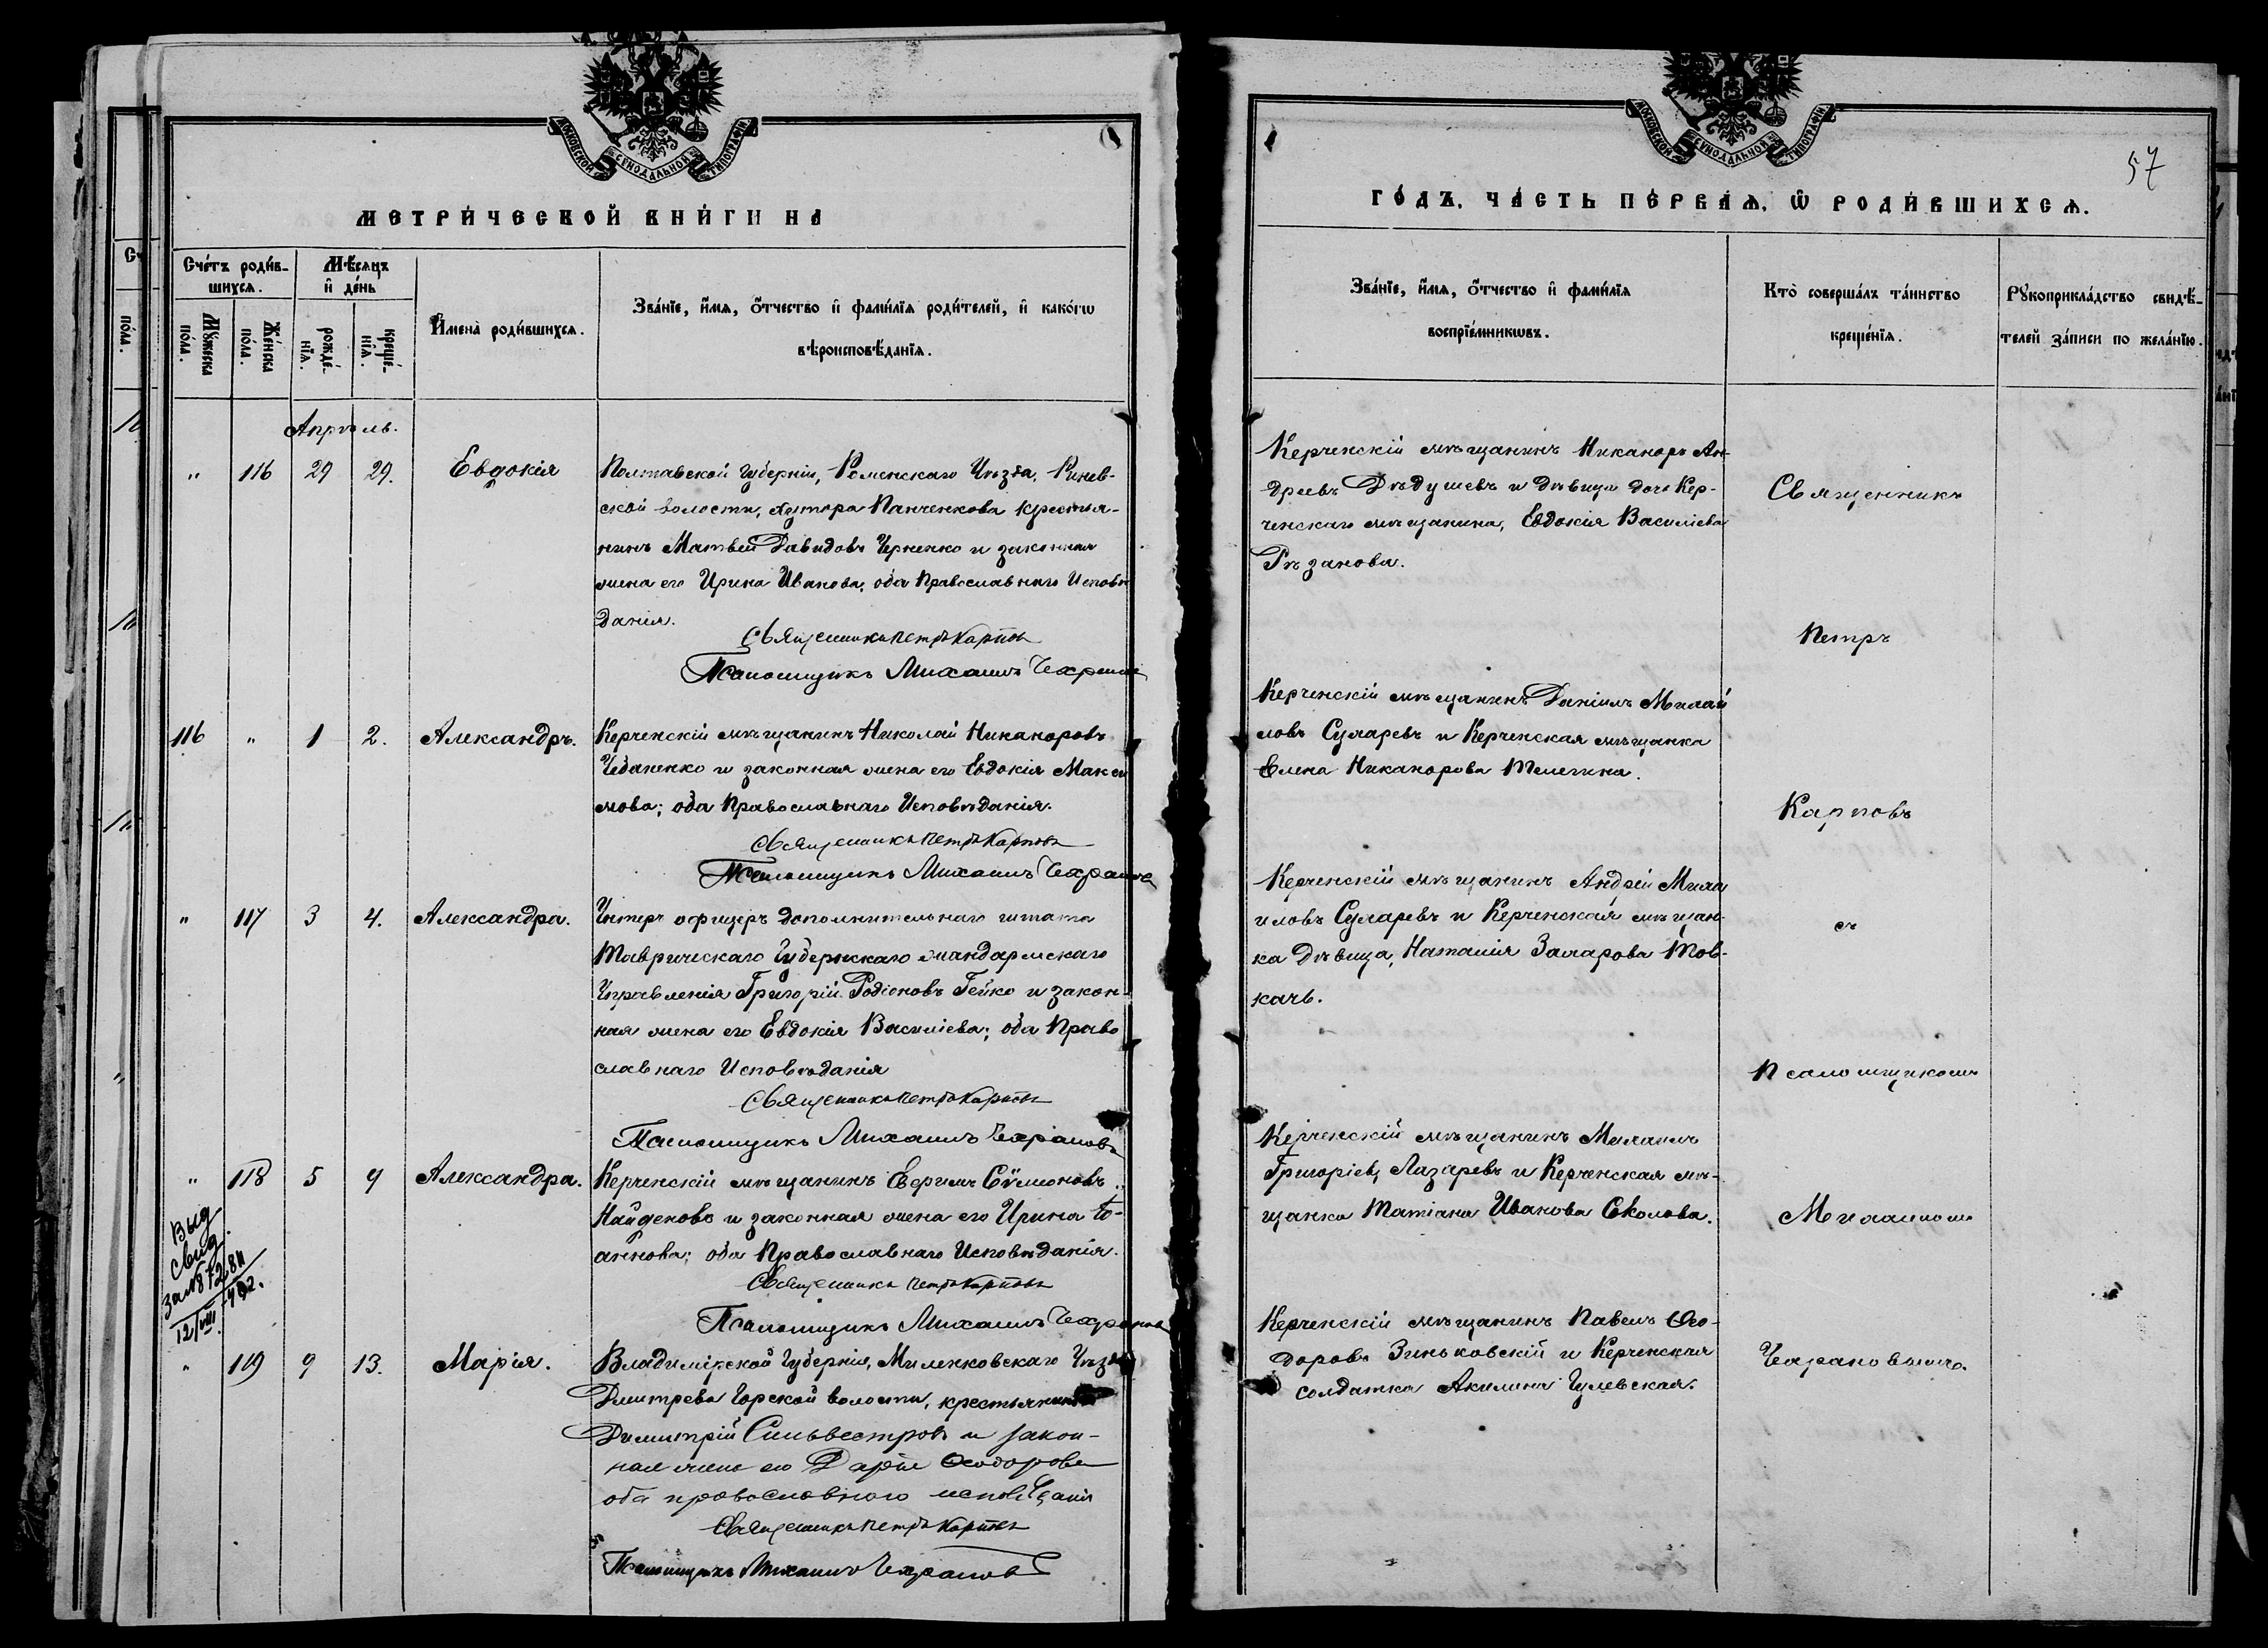 МОСКОВСКОЙ СѴНОДАЛЬНОЙ ТИПОГРАФІИ.
МЕТРИ́ЧЕСКОЙ КНИ́ГИ НА
Сче́тъ роди́в-
шихся.
Мѣ́сяцъ
и҆ де́нь
Мꙋ́жеска
по́ла.
Же́нска
по́ла.
рожде́-
нїѧ.
креще́-
нїѧ.
И҆мена̀ роди́вшихсѧ.
Зва́нїе, и҆́мѧ, ѻ҆́тчество и҆ фами́лїѧ роди́телей, и҆ како́гѡ
вѣроисповѣ́данїѧ.
Апрѣль.
" 116 29 29. Евдокія
Полтавской губерніи, Роменскаго Уѣзда,
ской волости, хутора Панченкова крестья-
нинъ Матвей Давидовъ Черненко и законная
жена его Ирина Иванова, оба Православнаго Исповѣ
данія.
Священникъ Петръ Карповъ
Псаломщикъ Михаилъ
116 " 1 2. Александръ.
Керченскій мѣщанинъ Николай Никаноровъ
Чебаненко и законная жена его Евдокія Макси
мова; оба Православнаго Исповѣданія.
Священникъ Петръ Карповъ
Псаломщикъ Михаилъ
" 117 3 4. Александра.
Унтеръ офицеръ дополнительнаго штата
Таврическаго Губернскаго жандармскаго
Управленія Григорій Родіоновъ Гейко и закон-
ная жена его Евдокія Василіева; оба Право
славнаго Исповѣданія
Священникъ Петръ Карповъ
Псаломщикъ Михаилъ
" 118 5 9 Александра.
Керченскій мѣщанинъ Сѵмеоновъ
Найденовъ и законная жена его Ирина Іо-
аннова; оба Православнаго Исповѣданія.
Священникъ Петръ Карповъ
Псаломщикъ Михаилъ
Выд
свид.
за №
12/VIII
" 119 9 13. Марія.
Владимірской Губерніи, Меленковскаго Уѣзда
Дмитрево Горской волости, крестьянинъ
Димитрій Сильвестровъ и закон-
ная жена его Дарія Ѳеодорова
оба православнаго исповѣданія
Священникъ Петръ Карповъ
Псаломщикъ Михаилъ
МОСКОВСКОЙ СѴНОДАЛЬНОЙ ТИПОГРАФІИ.
57
ГО́ДЪ. ЧА́СТЬ ПЕ́РВАЯ, Ѽ РОДИ́ВШИХСѦ.
Зва́нїе, и҆́мѧ, ѻ҆́тчество и҆ фами́лїѧ
воспрїе́мникѡвъ.
Кто̀ соверша́лъ та́инство
креще́нїѧ.
Рꙋкоприкла́дство свидѣ́-
телей за́писи по жела́нїю.
Керченскій мѣщанинъ Никаноръ Ан-
дреевъ Дѣдушевъ и дѣвица дочь Кер-
ченскаго мѣщанина, Евдокія Василіева
Рѣзанова.
Керченскій мѣщанинъ Даніилъ Михай
ловъ Сухаревъ и Керченская мѣщанка
Елена Никанорова Телегина.
Керченскій мѣщанинъ Андрей Миха
иловъ Сухаревъ и Керченская мѣщан-
ка дѣвица, Наталія Захарова Тов-
качь.
Керченскій мѣщанинъ Михаилъ
Григоріевъ Лазаревъ и Керченская мѣ-
щанка Татіана Иванова
Керченскій мѣщанинъ Павелъ Ѳео-
доровъ Зиньковскій и Керченская
солдатка Акилина
Священникъ
Петръ
Карповъ
съ
псаломщикомъ
Михаиломъ